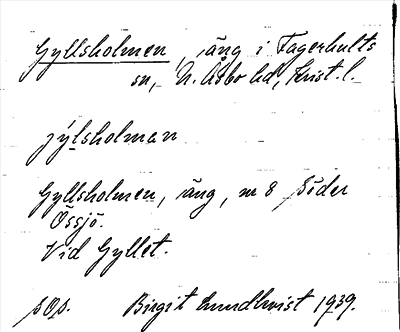 Gyllsholmen, äng i Fagerhults
sn, N. Åsbo hd, Krist. l.
jýlsholman
Gyllsholmen, äng, nr 8 Söder
Össjö.
Vid Gyllet.
Birgit Lundkvist 1939.